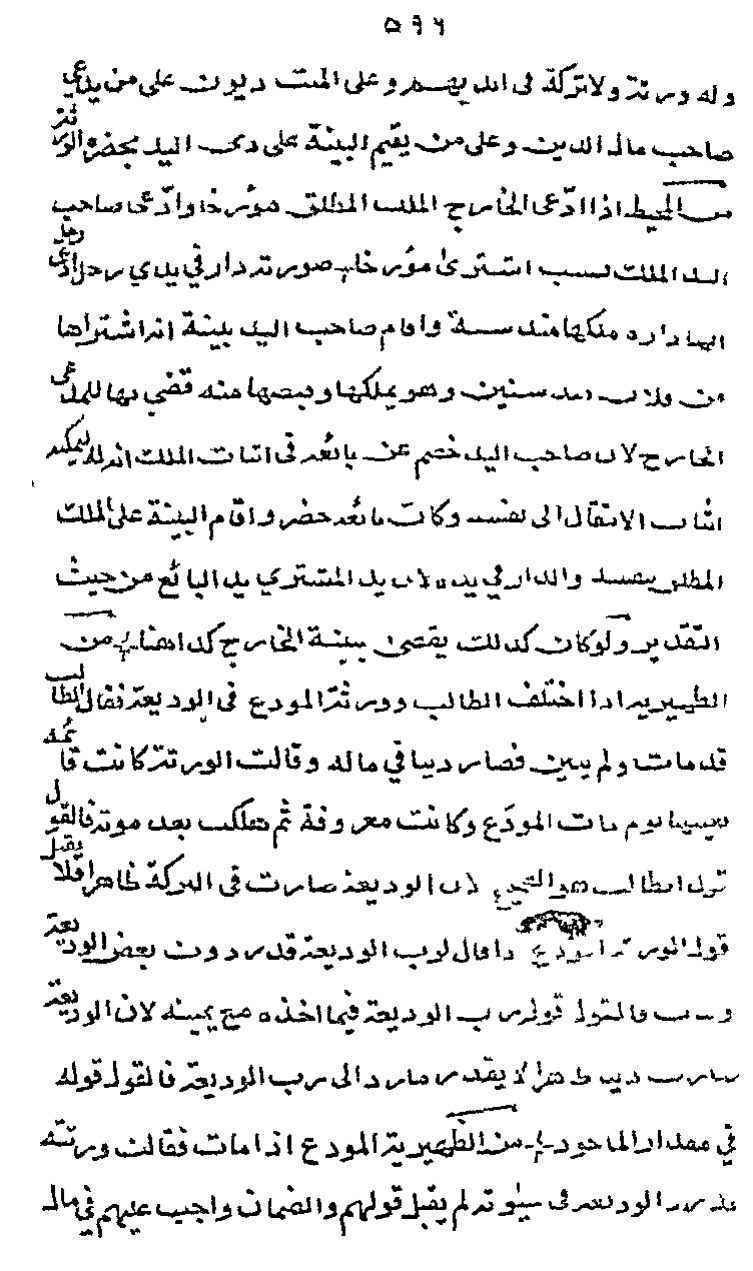 ٥٩٦
وله ورثة ولا تركة في ايديهم وعلى الميت ديون على من يدعي
صاحب مال الدين وعلى من يقيم البينة على ذى اليد بحضرة الورثة
من المحيط اذا ادّعى الخارج الملك المطلق مؤرخا وادّعى صاحب
اليد الملك بسبب اشترى مؤرخا صورته دار في يدي رجل ادعى رجل
انها داره ملكها منذ سنة واقام صاحب اليد بينة انه اشتراها
من فلان منذ سنين وهو يملكها وقبضها منه قضي بها للمدعي
الخارج لان صاحب اليد خصم عن بائعه في اثبات الملك له ليمكنه
اثبات الانتقال الى نفسه وكان بائعه حضر واقام البينة على الملك
المطلق بنفسه والدار في يده لان يد المشتري يد البائع من حيث
التقدير ولو كان كذلك يقضى ببينة الخارج كذا هنا من
الظهيرية اذا اختلف الطالب وورثة المودع في الوديعة فقال الطالب
قد مات ولم يبين فصار دينا في ماله وقالت الورثة كانت قائمة
بعينها يوم مات المودع وكانت معروفة ثم هلكت بعد موته فالقول
قول الطالب هو الصحيح لان الوديعة صارت في التركة ظاهرا فلا يقبل
قول الورثة المودع اذا قال لرب الوديعة قد رددت بعض الوديعة
ومات فالقول قول رب الوديعة فيما اخذه مع يمينه لان الوديعة
صارت دينا ظاهرا لا يقدر ما رد الى رب الوديعة فالقول قوله
في مقدار الماخوذ من الظهيرية المودع اذا مات فقالت ورثته
قد رد الوديعة في حيوته لم يقبل قولهم والضمان واجب عليهم في مال